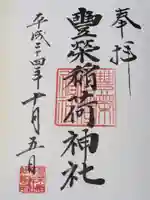 奉拝
豊榮稲荷神社
平成二十四年十月五日